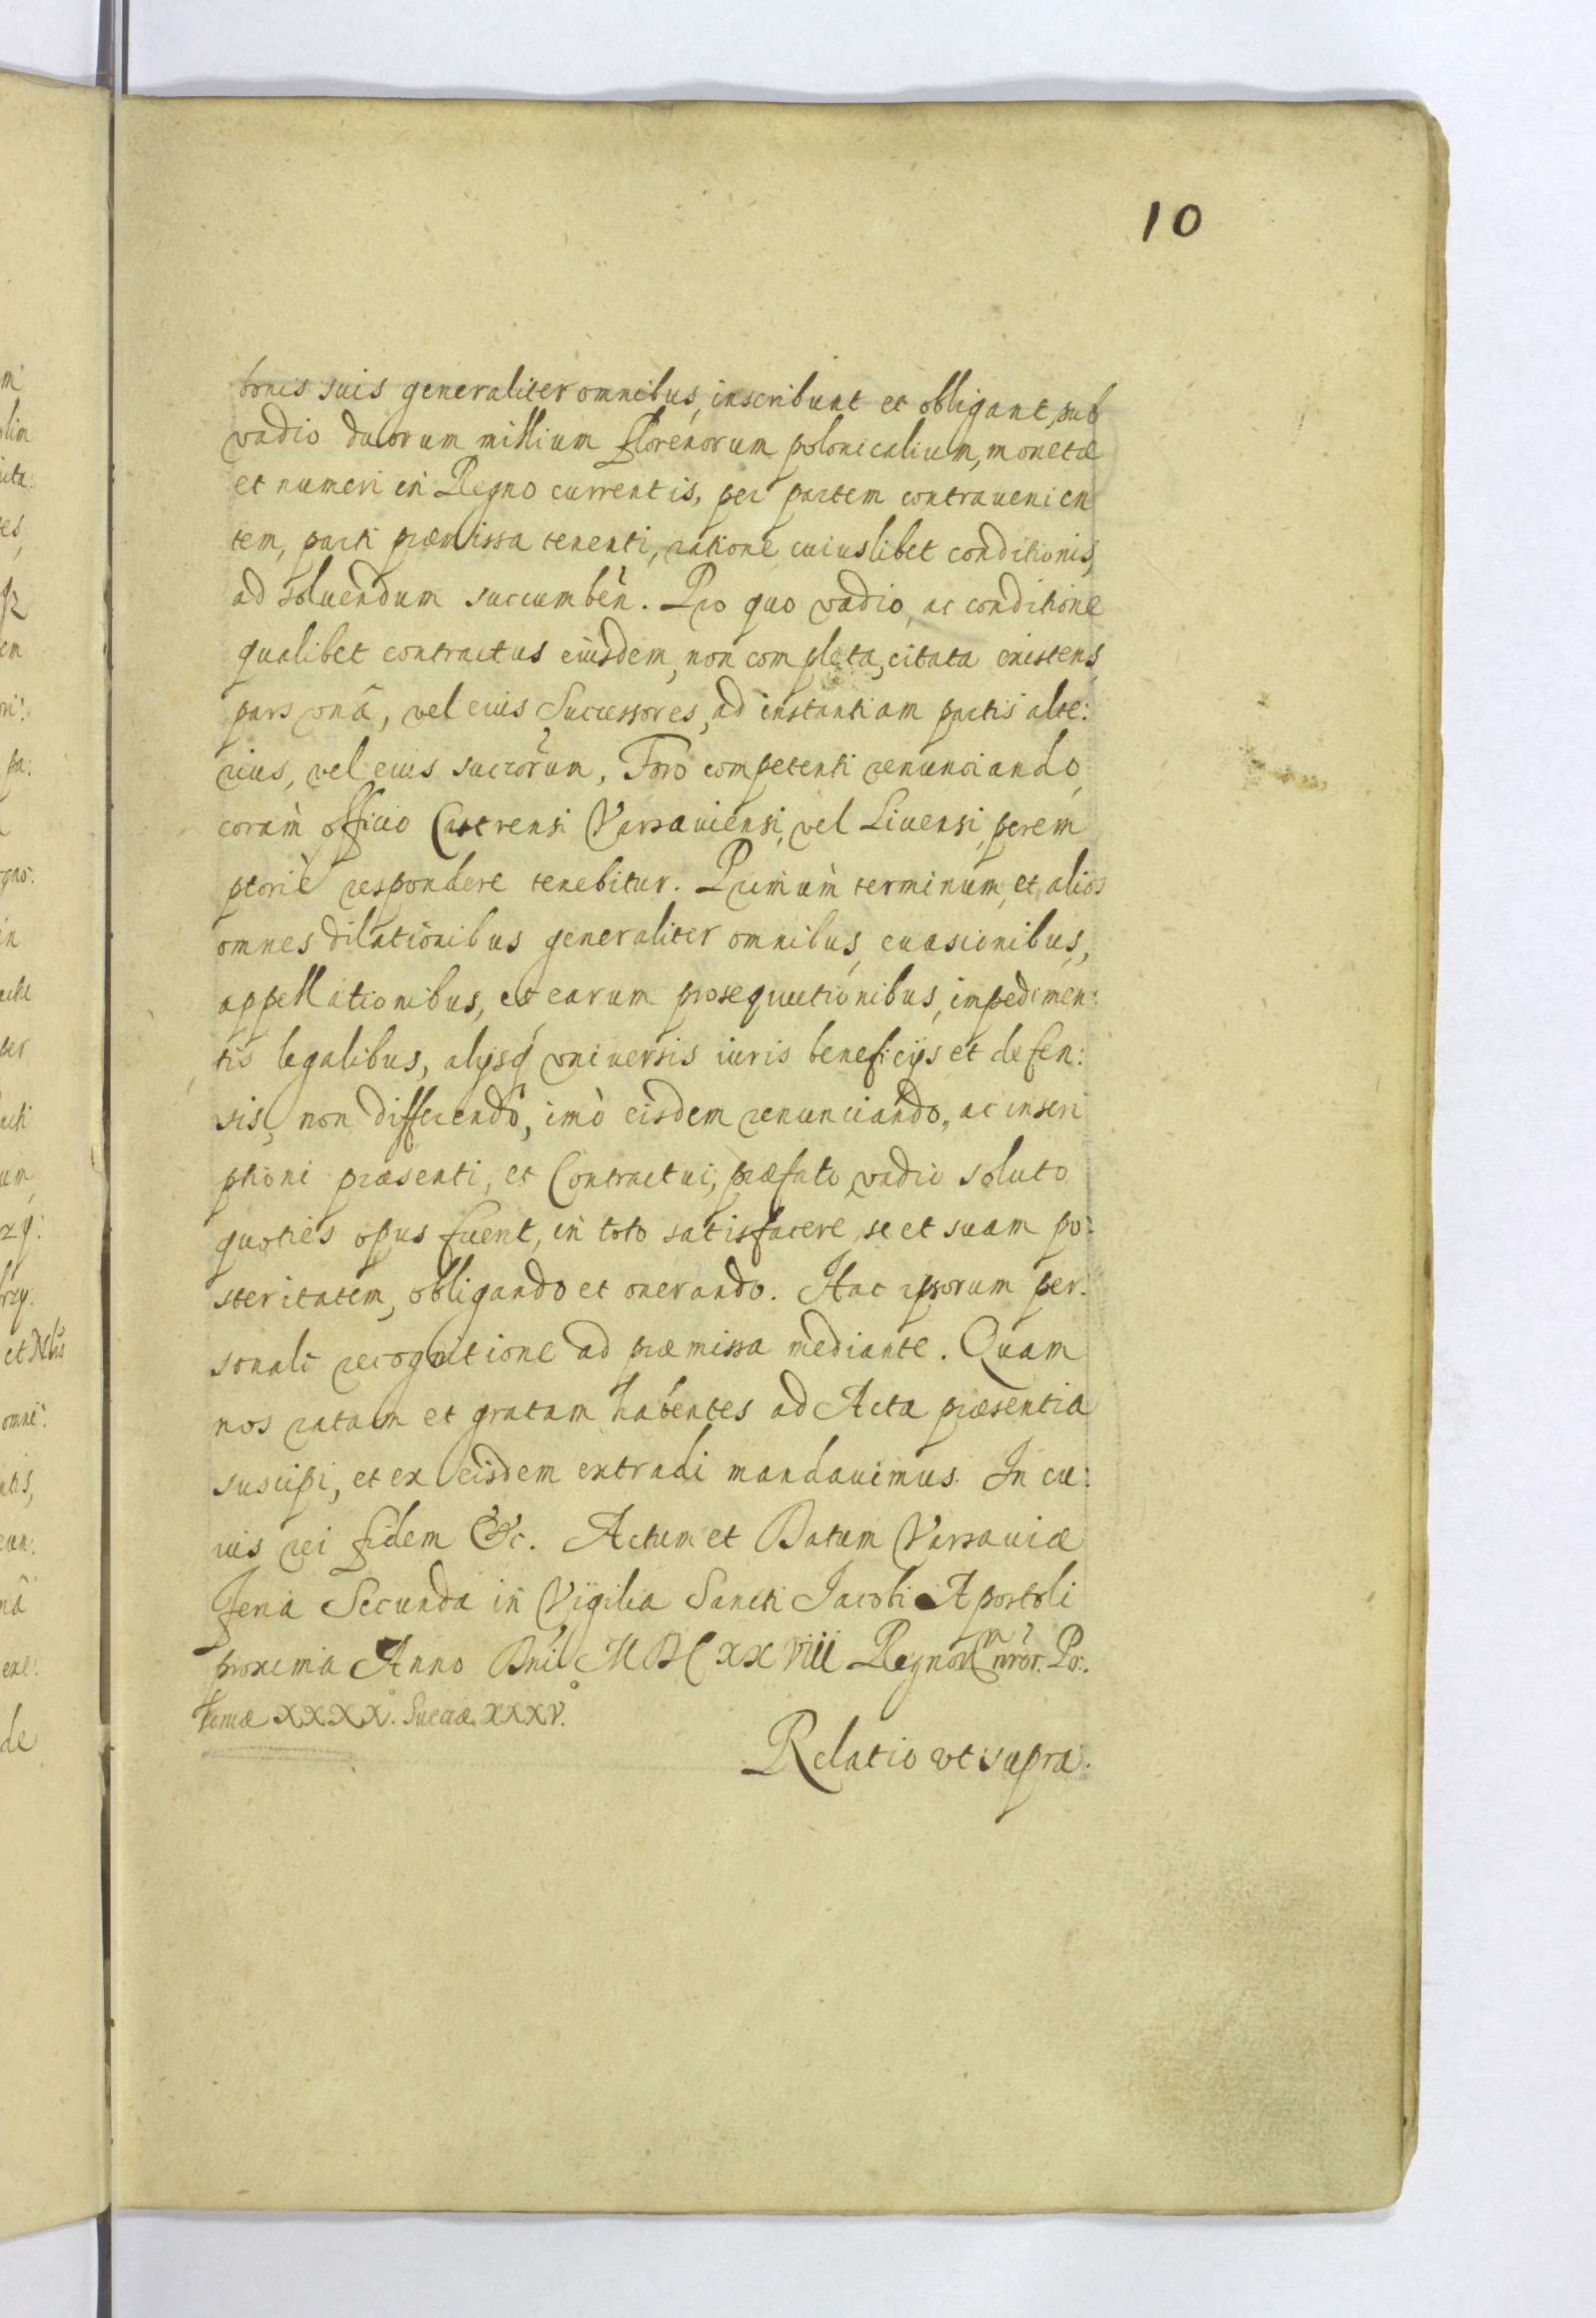 10
bonis suis generaliter omnibus, inscribunt et obligant, sub
vadio duorum millium florenorum polonicalium, monetæ
et numeri in Regno currentis, per partem contravenien
tem, parti præmissa tenenti, ratione cuiuslibet conditionis,
ad soluendum succumbeñ. Pro quo vadio, ac conditione
qualibet contractus eiusdem, non completa, citata existens
pars vnâ, vel eius Successores, ad instantiam partis alte:
rius, vel eius succõrum, Foro competenti renunciando,
coram officio Castrensi Varsauiensi, vel Liuensi, perem
ptoriè respondere tenebitur. Primum terminum, et alios
omnes dilationibus generaliter omnibus, euasionibus,
appellationibus, et earum prosequutionibus, impedimen:
tis legalibus, alijsq́ vniuersis iuris beneficijs et defen:
sis, non differendo, imò eisdem renunciando, ac inscri
ptioni præsenti, et Contractui, præfato vadio soluto
quoties opus fuerit, in toto satisfacere, se et suam po:
steritatem, obligando et onerando. Hac ipsorum per:
sonali recognitione ad præmissa mediante. Quam
nos ratam et gratam habentes ad Acta præsentia
suscipi, et ex eisdem extradi mandauimus. In cu:
ius rei fidem &c. Actum et Datum Varsauiæ
Feria Secunda in Vigilia Sancti Jacobi Apostoli
proxima Anno Dñi MDCXXVIII Regnorm̃ nr̃or. Po:
loniæ XXXX. Sueciæ XXXV.
Relatio vt supra.